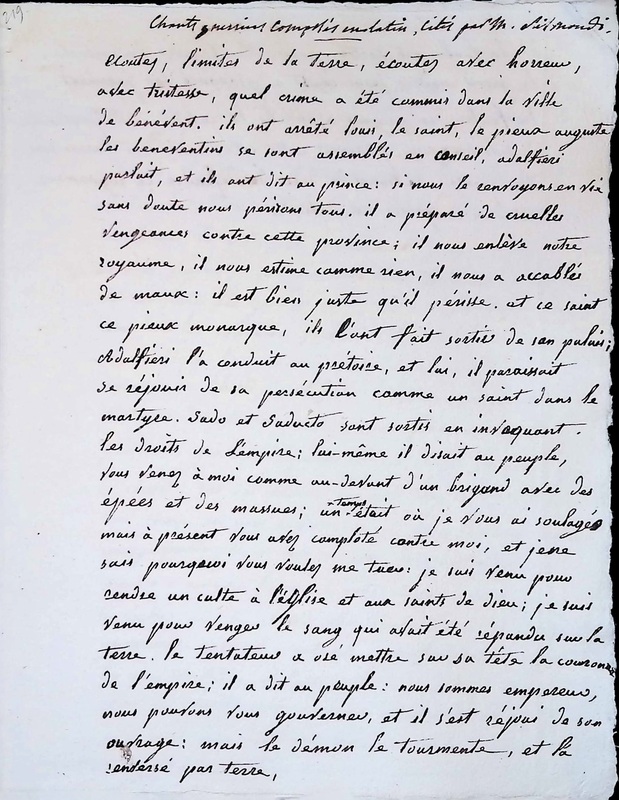 219
Chants guerriers Composés en latin, cités par M. Sismondi.
écoutez, limites de la terre, écoutez avec horreur,
avec tristesse, quel crime a été commis dans la ville
de bénévent. ils ont arrêté louis, le saint, le pieux auguste
les beneventins se sont assemblés en conseil, adalfieri
parlait, et ils ont dit au prince: si nous le renvoyons en vie
sans doute nous périrons tous. il a préparé de cruelles
vengeances contre cette province; il nous enlève notre
royaume, il nous estime comme rien, il nous a accablés
de maux: il est bien juste qu'il périsse. et ce saint
ce pieux monarque, ils l'ont fait sortir de son palais;
Adalfieri l'a conduit au prétoire, et lui, il paraissait
se réjouir de sa persécution comme un saint dans le
martyre. Sado et Saducto sont sortis en invoquant
les droits de l'Empire; lui-même il disait au peuple,
vous venez à moi comme au-devant d'un brigand avec des
épées et des massues; un temps était où je vous ai soulagés
mais à présent vous avez comploté contre moi, et je ne
sais pourquoi vous voulez me tuer: je suis venu pour
rendre un culte à l'église et aux saints de dieu; je suis
venu pour venger le sang qui avait été répandu sur la
terre. le tentateur a osé mettre sur sa tête la couronne
de l'empire; il a dit au peuple: nous sommes empereur,
nous pouvons vous gouverner, et il s'est réjoui de son
ouvrage: mais le démon le tourmente, et l'a
renversé par terre,